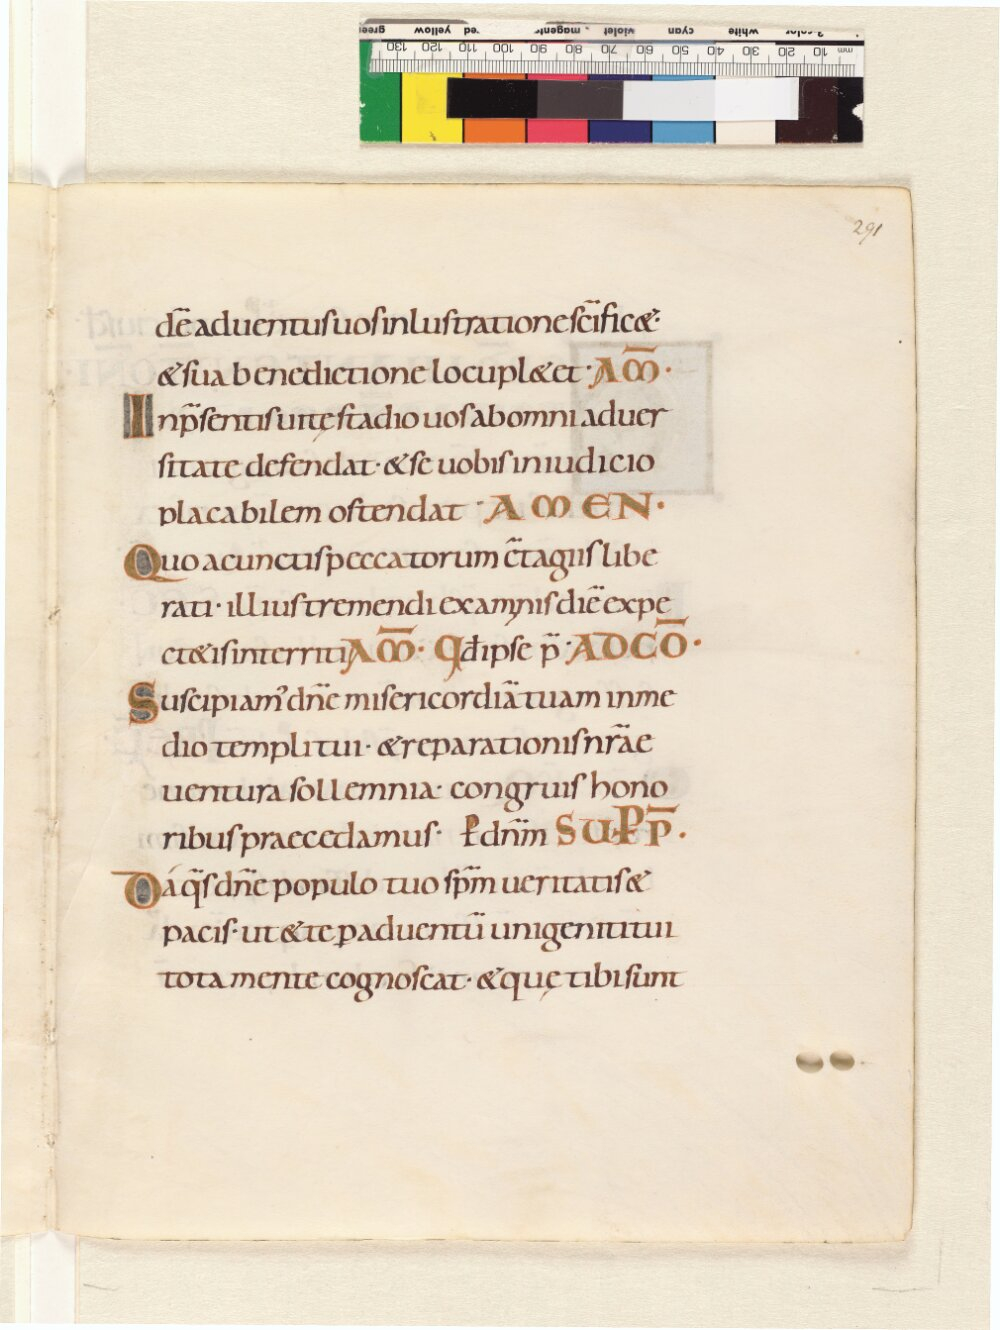 291
dē aduentus uos inlustratione sc̄ificet
& sua benedictione locupl&et · AM̄ ·
In p̄sentis uitę stadio uos ab omni aduer
sitate defendat · & se uobis in iudicio
placabilem ostendat · AMEN ·
Quo a cunctis peccatorum c̄tagiis libe
rati · illius tremendi examinis diē expe
ct&is interriti AM̄ · Qđ ipse p̄ · AD CŌ ·
Suscipiam' dn̄e misericordiā tuam in me
dio templi tui · & reparationis nr̄ae
uentura sollemnia · congruis hono
ribus praecedamus · P dn̄m SUP P̄P ·
Da q̄s dn̄e populo tuo sp̄m ueritatis &
pacis · ut & te p aduentū unigeniti tui
tota mente cognoscat · & quę tibi sunt